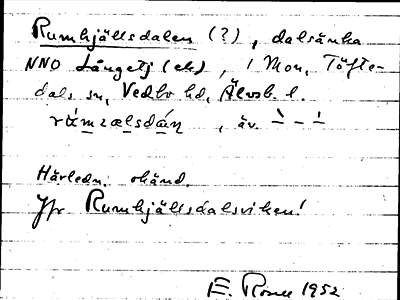 Rumhjällsdalen (?), dalsänka
NNO Långetj (ek), i Mon, Töfte-
dals sn, Vedbo hd, Älvsb. l.
, äv. ` - - ´
Härledn. okänd.
Jfr Rumhjällsdalsviken!
E. Rosell 1952